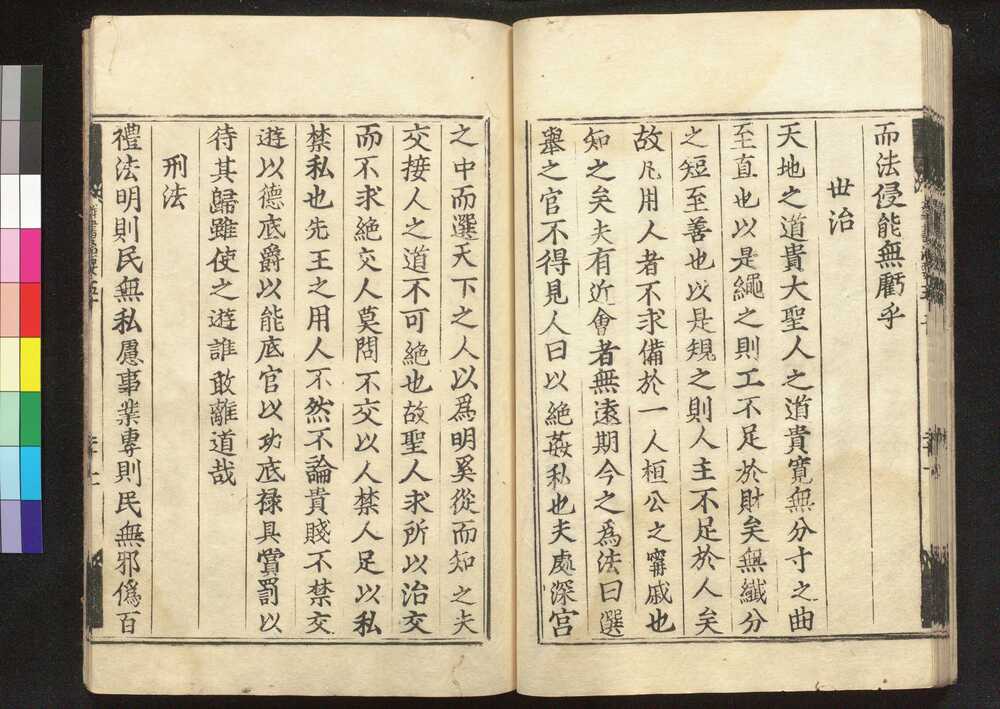 而法侵能無虧乎
世治
天地之道貴大聖人之道貴寬無分寸之曲
至直也以是繩之則工不足於財矣無纖分
之短至善也以是規之則人主不足於人矣
故凡用人者不求備於一人桓公之甯戚也
知之矣夫有近會者無遠期今之爲法曰選
舉之官不得見人曰以絶姦私也夫處深宫
之中而選天下之人以爲明奚從而知之夫
交接人之道不可絶也故聖人求所以治交
而不求絶交人莫問不交以人禁人足以私
禁私也先王之用人不然不論貴賤不禁交
遊以德底爵以能底官以功底禄具賞罰以
待其歸雖使之遊誰敢離道哉
刑法
禮法明則民無私慮事業專則民無邪僞百